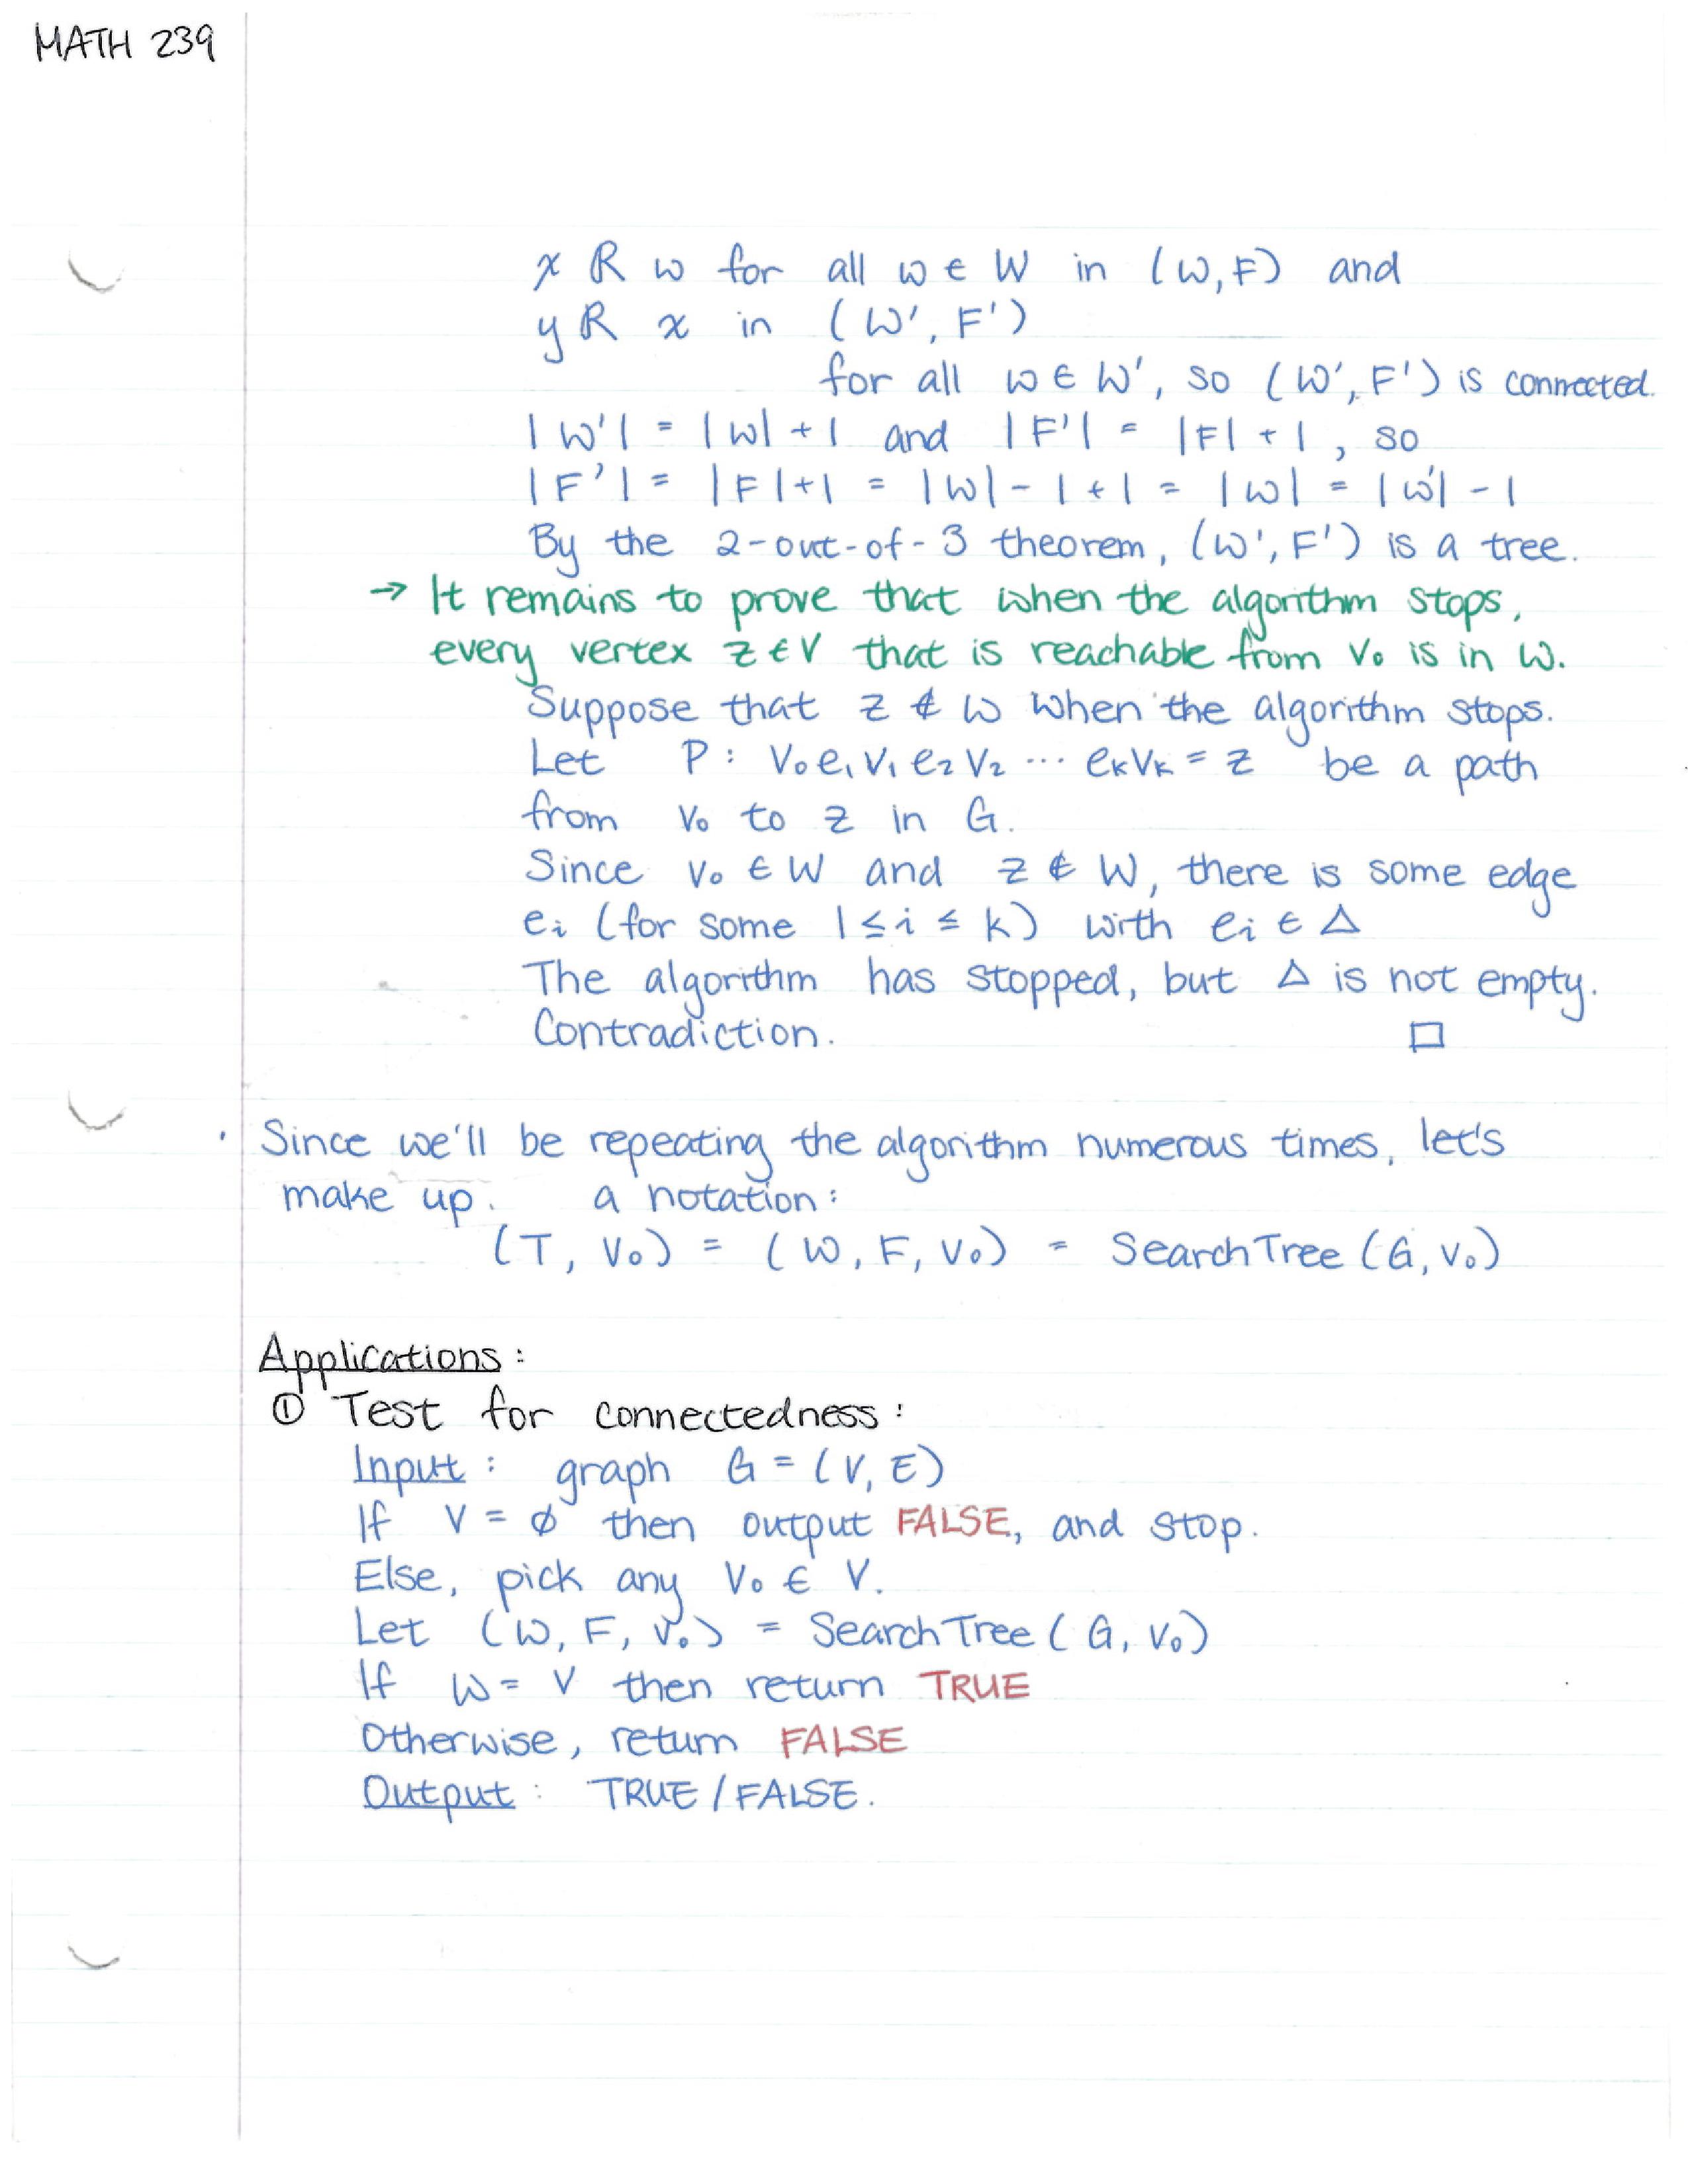 MATH 239
x R w for all w ∈ W in (W, F) and
y R x in (W', F')
for all w ∈ W', so (W', F') is connected.
|W'| = |W| + 1 and |F'| = |F| + 1, so
|F'| = |F| + 1 = |W| - 1 + 1 = |W| = |W'| - 1
By the 2-out-of-3 theorem, (W', F') is a tree.
→ It remains to prove that when the algorithm stops,
every vertex z ∈ V that is reachable from v₀ is in W.
Suppose that z ∉ W when the algorithm stops.
Let P : v₀e₁v₁e₂v₂ ... eₖvₖ = z be a path
from v₀ to z in G.
Since v₀ ∈ W and z ∉ W, there is some edge
eᵢ (for some 1 ≤ i ≤ k) with eᵢ ∈ Δ
The algorithm has stopped, but Δ is not empty.
Contradiction. □
· Since we'll be repeating the algorithm numerous times, let's
make up. a notation:
(T, v₀) = (W, F, v₀) = SearchTree (G, v₀)
Applications:
① Test for connectedness:
Input: graph G = (V, E)
If V = ∅ then output FALSE, and stop.
Else, pick any v₀ ∈ V.
Let (W, F, v₀) = SearchTree (G, v₀)
If W = V then return TRUE
Otherwise, return FALSE
Output: TRUE/FALSE.